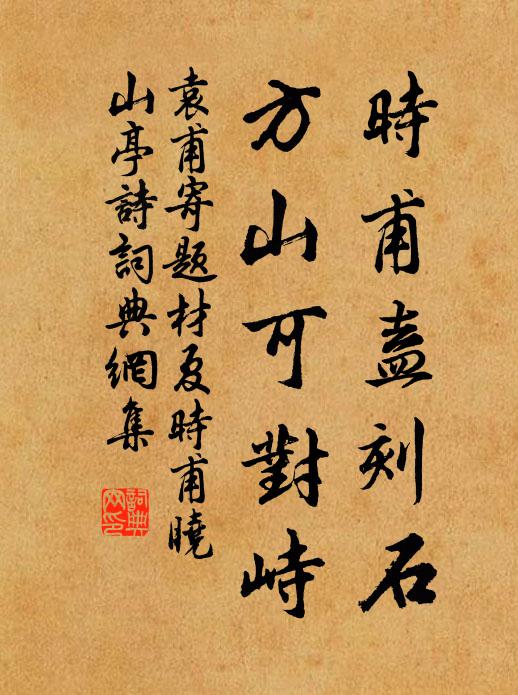 時甫盍刻石
方山可對峙
袁甫寄題材夏時甫曉
山亭詩詞典網集
詞典網印